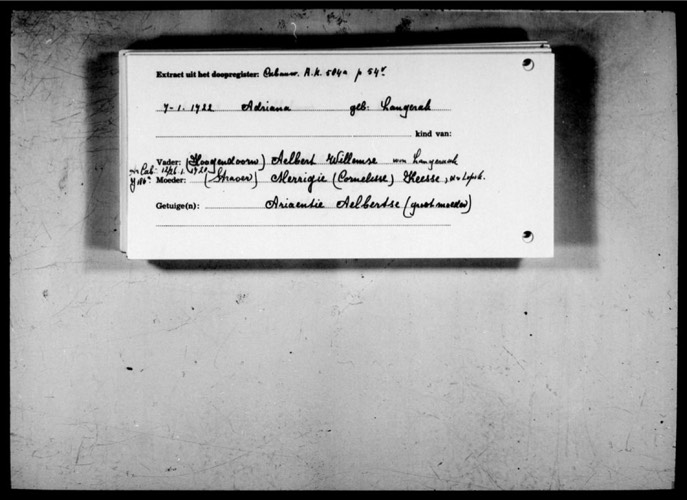 Extract uit het doopregister: Cabauw. A.K. 504a p 54v
7-1. 1722 Adriana geb: Langerak
kind van:
Vader: (Hoogendoorn) Aelbert Willemse won Langerack
Cab. 12/26.1.1721
Moeder: (Straver) Merrigie (Cornelisse) Heesse,
Getuige(n): Ariaentie Aelbertse (grootmoeder)